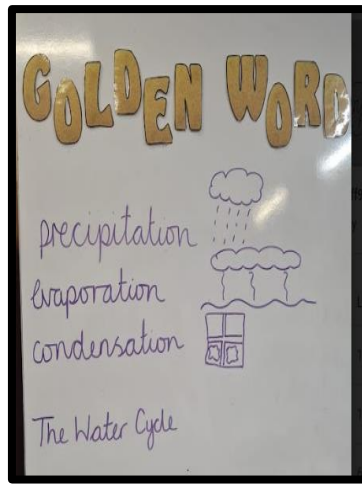 GOLDEN WORD
precipitation
evaporation
condensation
The Water Cycle